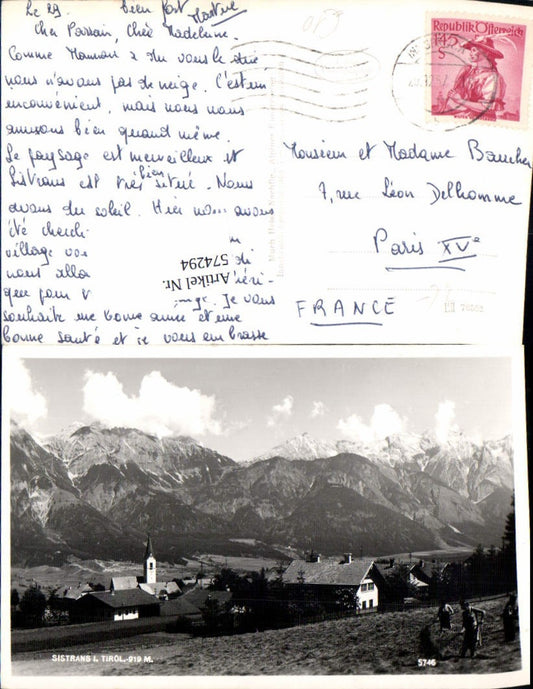 Le 29
bien fort
Martine
Cher Parrain, Chère Madeleine.
Comme Maman a du vous le dire
nous n'avons pas de neige. C'est un
inconvénient, mais nous nous
amusons bien quand même.
Le paysage est merveilleux et
Sistrans est très bien situé. Nous
avons du soleil. Hier nous avons
été cherch
village vo
nous alla
que pour
Je vous
souhaite une bonne année et une
bonne santé et je vous embrasse
Artikel Nr.
574294
Republik Österreich
1.45
S
Monsieur et Madame Baucher
7, rue Léon Delhomme
Paris XVe
FRANCE
SISTRANS I. TIROL. 919 M.
5746